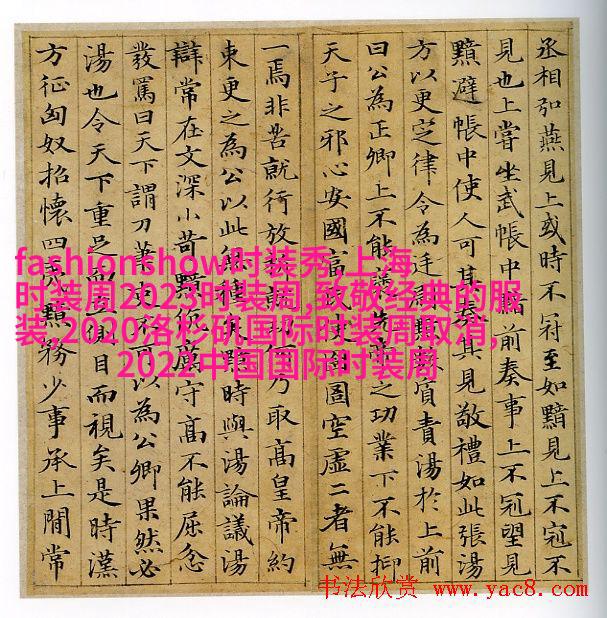 丞相弘燕見上或時不冠至如黯見上不冠不
見也上嘗坐武帳中黯前奏事上不冠望見
黯避帳中使人可其奏其見敬禮如此張湯
方以更定律令為廷尉黯質責湯於上前
曰公為正卿上不能先帝之功業下不能抑
天子之邪心安國富囹圄空虛二者無
一焉非苦就行放何乃取高皇帝約
束更之為公以此無種矣黯時與湯論議湯
辯常在文深小苛黯伉厲守高不能屈忿
發罵曰天下謂刀筆吏不可以為公卿果然必
湯也令天下重足而立側目而視矣是時漢
方征匈奴招懷四夷黯務少事承上間常
fashionshow时装秀,上海
时装周2023时装周,致敬经典的服
装,2020洛杉矶国际时装周取消,
2022中国国际时装周
书法欣赏 www.yac8.com